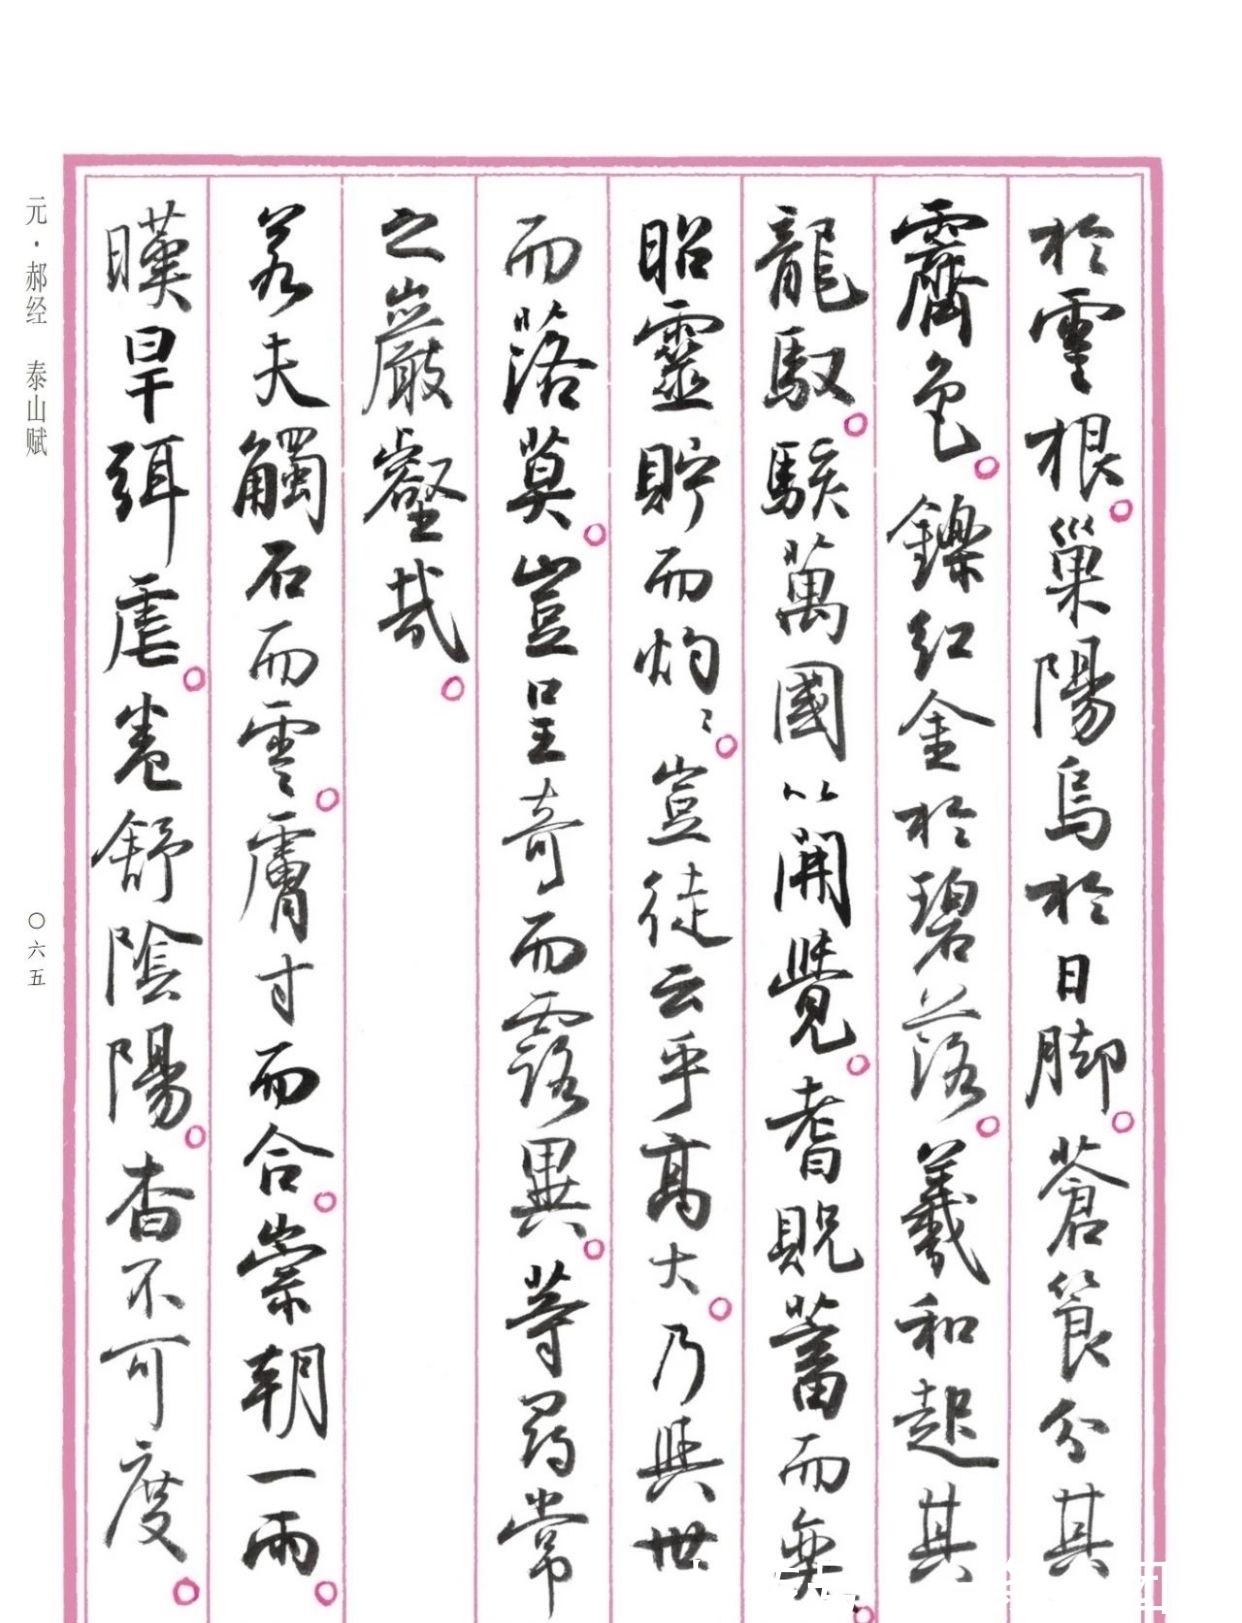 於雲根。巢陽烏於日脚。蒼筤分其
霽色。鑠紅金於碧落。羲和起其
龍馭。駭萬國以開覺。耆贶蓄而奕。
昭靈貯而灼〻。豈徒云乎高大。乃與世
而落莫。豈呈奇而露異。等尋常
之巖壑哉。
若夫觸石而雲。膚寸而合。崇朝一雨。
暵旱弭虐。卷舒陰陽。杳不可度。
元·郝经 泰山赋
〇六五